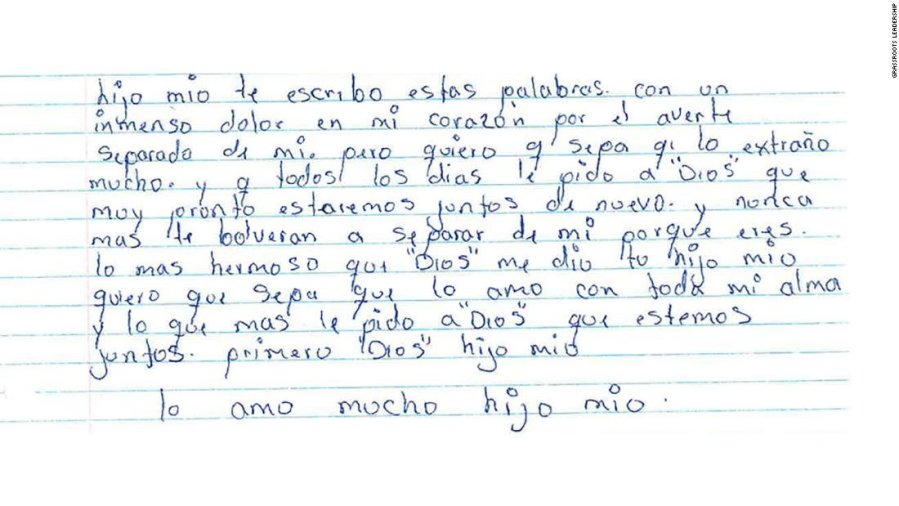 GRASSROOTS LEADERSHIP
hijo mio te escribo estas palabras. con un
inmenso dolor en mi corazón por el averte
separado de mi. pero quiero q sepa q lo extraño
mucho. y q todos los dias le pido a "Dios" que
muy pronto estaremos juntos de nuevo. y nunca
mas te bolveran a separar de mi porque eres.
lo mas hermoso que "Dios" me dio tu hijo mio
quiero que sepa que lo amo con toda mi alma
y lo que mas le pido a "Dios" que estemos
juntos. primero "Dios" hijo mio
lo amo mucho hijo mio.